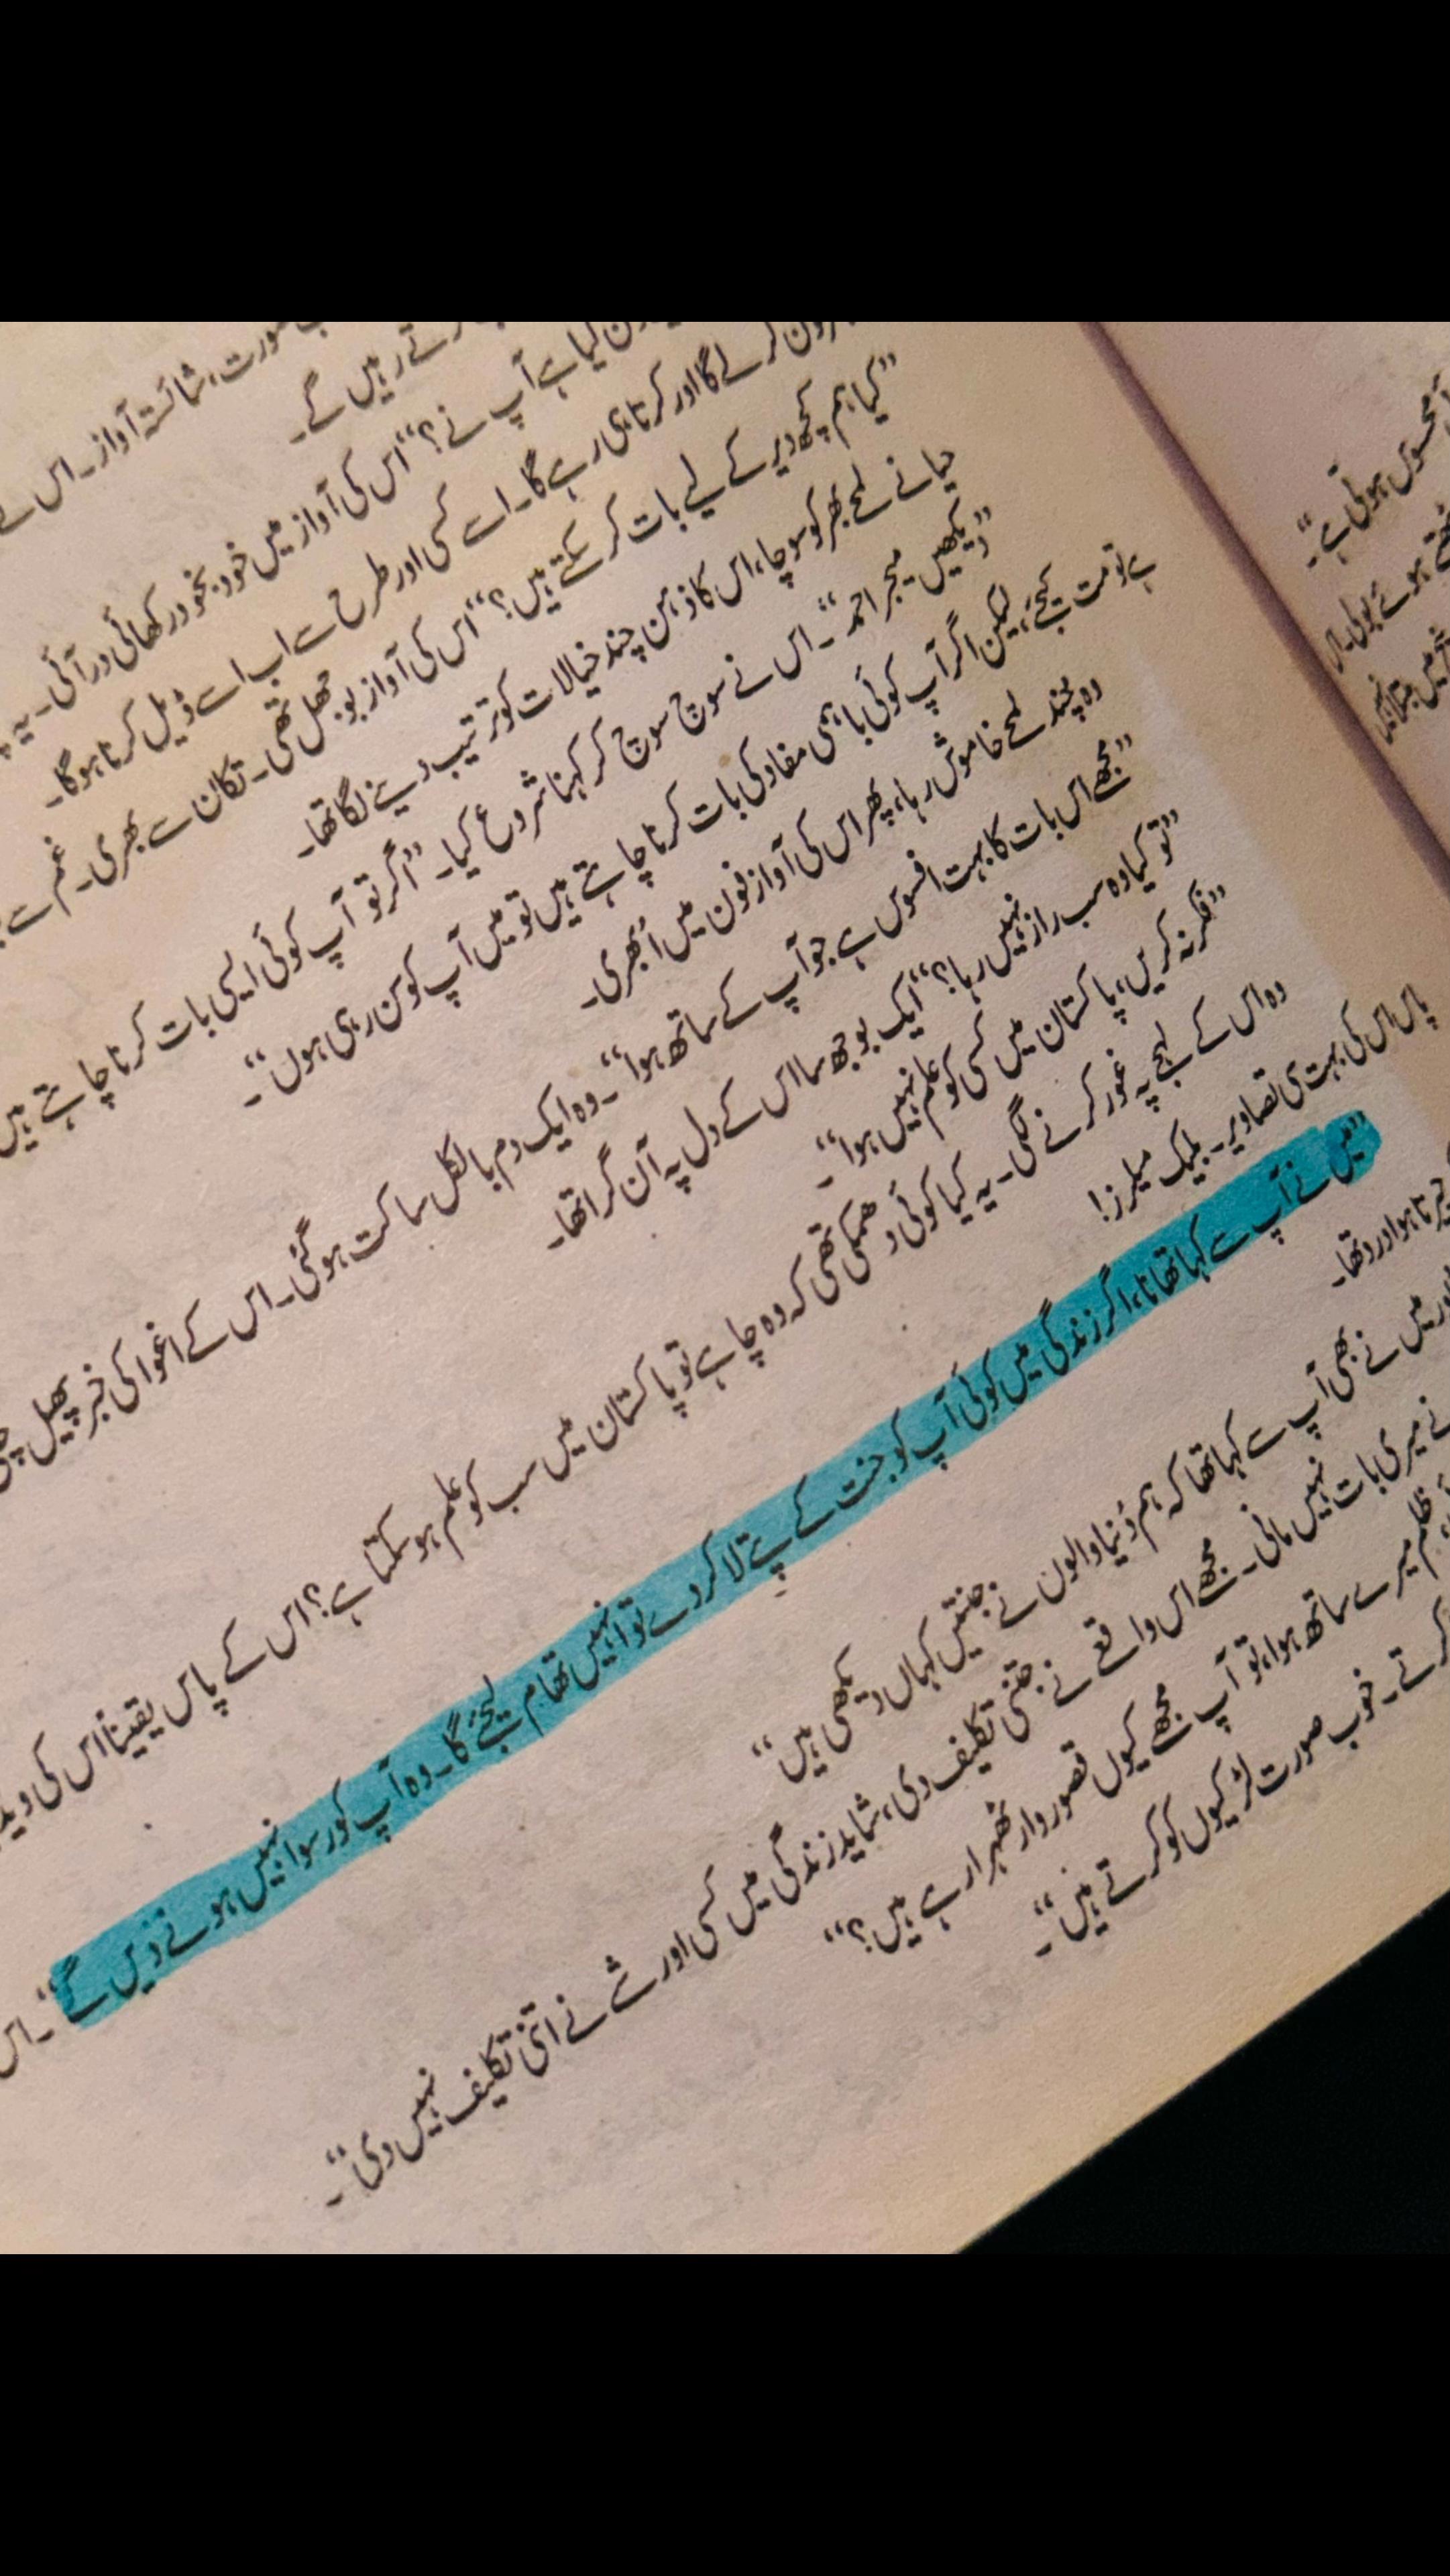 صورت، شائستہ آواز۔ اس نے
کرتے رہیں گے۔
کیا ہے آپ نے؟“ اس کی آواز میں خود بخود رکھائی در آئی۔ یہ
فون کرے گا اور کرتا ہی رہے گا۔ اسے کسی اور طرح سے اب اسے ڈیل کرنا ہوگا۔
”کیا ہم کچھ دیر کے لیے بات کر سکتے ہیں؟“ اس کی آواز بوجھل تھی۔ تکان سے بھری۔ غم سے
حیا نے لمحے بھر کو سوچا، اس کا ذہن چند خیالات کو ترتیب دینے لگا تھا۔
”دیکھیں میجر احمد“۔ اس نے سوچ سوچ کر کہنا شروع کیا۔ ”اگر تو آپ کوئی ایسی بات کرنا چاہتے ہیں
ہے تو مت کیجیے، لیکن اگر آپ کوئی باہمی مفاد کی بات کرنا چاہتے ہیں تو میں آپ کو سن رہی ہوں“۔
وہ چند لمحے خاموش رہا، پھر اس کی آواز فون میں اُبھری۔
”مجھے اس بات کا بہت افسوس ہے جو آپ کے ساتھ ہوا“۔ وہ ایک دم بالکل ساکت ہو گئی۔ اس کے اغوا کی خبر پھیل
”تو کیا وہ سب راز نہیں رہا؟“ ایک بوجھ سا اس کے دل پہ آن گرا تھا۔
”فکر نہ کریں، پاکستان میں کسی کو علم نہیں ہوا“۔
وہ اس کے لہجے پہ غور کرنے لگی۔ یہ کیا کوئی دھمکی تھی کہ وہ چاہے تو پاکستان میں سب کو علم ہو سکتا ہے؟ اس کے پاس یقیناً اس کی
پاس اس کی بہت سی تصاویر۔ بلیک میلرز!
”میں نے آپ سے کہا تھا نا، اگر زندگی میں کوئی آپ کو جنت کے پتے لا کر دے تو انہیں تھام لیجئے گا۔ وہ آپ کو رسوا نہیں ہونے دیں گے“۔ اس
چیرتا ہوا درد تھا۔
میں نے بھی آپ سے کہا تھا کہ ہم دُنیا والوں نے جنتیں کہاں دیکھی ہیں“
نے میری بات نہیں مانی۔ مجھے اس واقعے نے جتنی تکلیف دی، شاید زندگی میں کسی اور شے نے اتنی تکلیف نہیں دی“۔
ظلم میرے ساتھ ہوا، تو آپ مجھے کیوں قصوروار ٹھہرا رہے ہیں؟“
کرتے۔ خوب صورت لڑکیوں کو کرتے ہیں“۔
محسوس ہوتی ہے“۔
ہوئے بولی۔